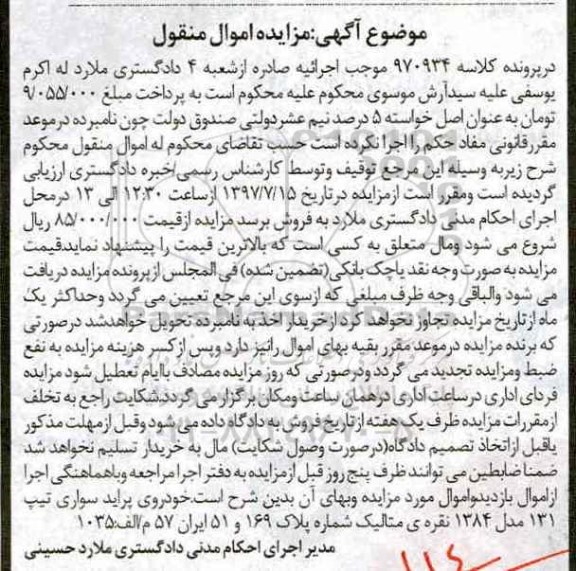 موضوع آگهی:مزایده اموال منقول
درپرونده کلاسه ۹۷۰۹۳۴ موجب اجرائیه صادره ازشعبه ۴ دادگستری ملارد له اکرم
یوسفی علیه سیدآرش موسوی محکوم علیه محکوم است به پرداخت مبلغ ۹/۰۵۵/۰۰۰
تومان به عنوان اصل خواسته ۵ درصد نیم عشردولتی صندوق دولت چون نامبرده درموعد
مقررقانونی مفاد حکم را اجرا نکرده است حسب تقاضای محکوم له اموال منقول محکوم
شرح زیربه وسیله این مرجع توقیف وتوسط کارشناس رسمی/خبره دادگستری ارزیابی
گردیده است ومقرر است ازمزایده درتاریخ ۱۳۹۷/۷/۱۵ ازساعت ۱۲:۳۰ الی ۱۳ درمحل
اجرای احکام مدنی دادگستری ملارد به فروش برسد مزایده ازقیمت ۸۵/۰۰۰/۰۰۰ ریال
شروع می شود ومال متعلق به کسی است که بالاترین قیمت را پیشنهاد نمایدقیمت
مزایده به صورت وجه نقد یاچک بانکی(تضمین شده) فی المجلس ازبرنده مزایده دریافت
می شود والباقی وجه ظرف مبلغی که ازسوی این مرجع تعیین می گردد وحداکثر یک
ماه ازتاریخ مزایده تجاوز نخواهد کرد ازخریدار اخذ به نامبرده تحویل خواهدشد درصورتی
که برنده مزایده درموعد مقرر بقیه بهای اموال رانیز دارد وپس ازکسر هزینه مزایده به نفع
ضبط ومزایده تجدید می گردد ودرصورتی که روز مزایده مصادف باایام تعطیل شود مزایده
فردای اداری درساعت اداری درهمان ساعت ومکان برگزار می گردد.شکایت راجع به تخلف
ازمقررات مزایده ظرف یک هفته ازتاریخ فروش به دادگاه داده می شود وقبل ازمهلت مذکور
یاقبل ازاتخاذ تصمیم دادگاه(درصورت وصول شکایت) مال به خریدار تسلیم نخواهد شد
ضمنا ضابطین می توانند ظرف پنج روز قبل ازمزایده به دفتر اجرا مراجعه وباهماهنگی اجرا
ازاموال بازدیدواموال مورد مزایده وبهای آن بدین شرح است.خودروی پراید سواری تیپ
۱۳۱ مدل ۱۳۸۴ نقره ی متالیک شماره پلاک ۱۶۹ و ۵۱ ایران ۵۷ م/الف:۱۰۳۵
مدیر اجرای احکام مدنی دادگستری ملارد حسینی